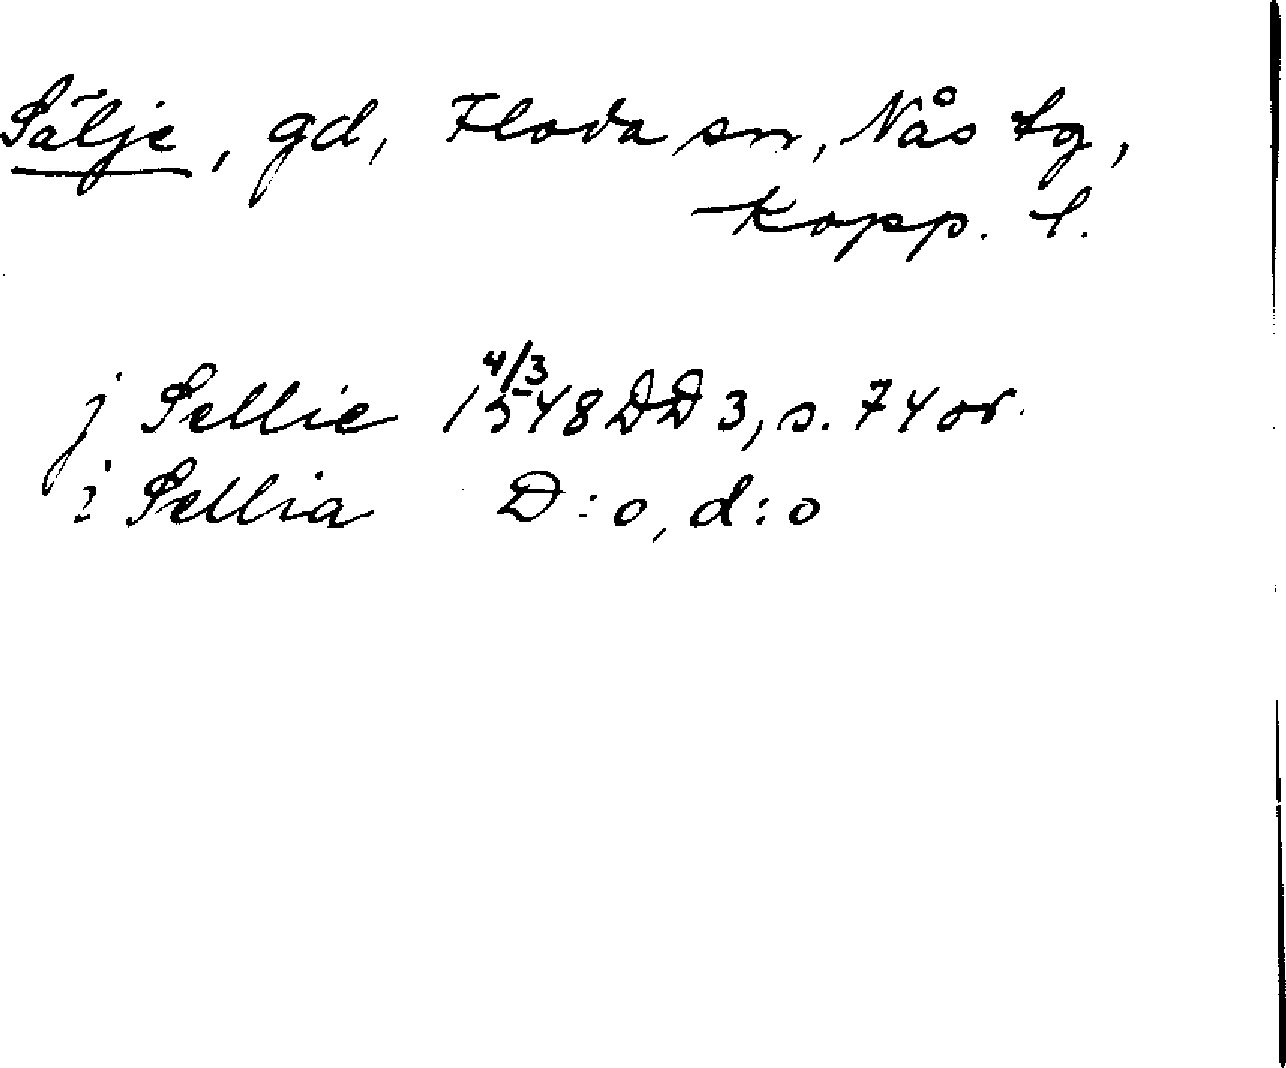 Sälje, gd, Floda sn, Nås tg,
Kopp. l.
j Sellie 4/3 1548 DD 3, s. 74 or.
i Sellia D:o, d:o